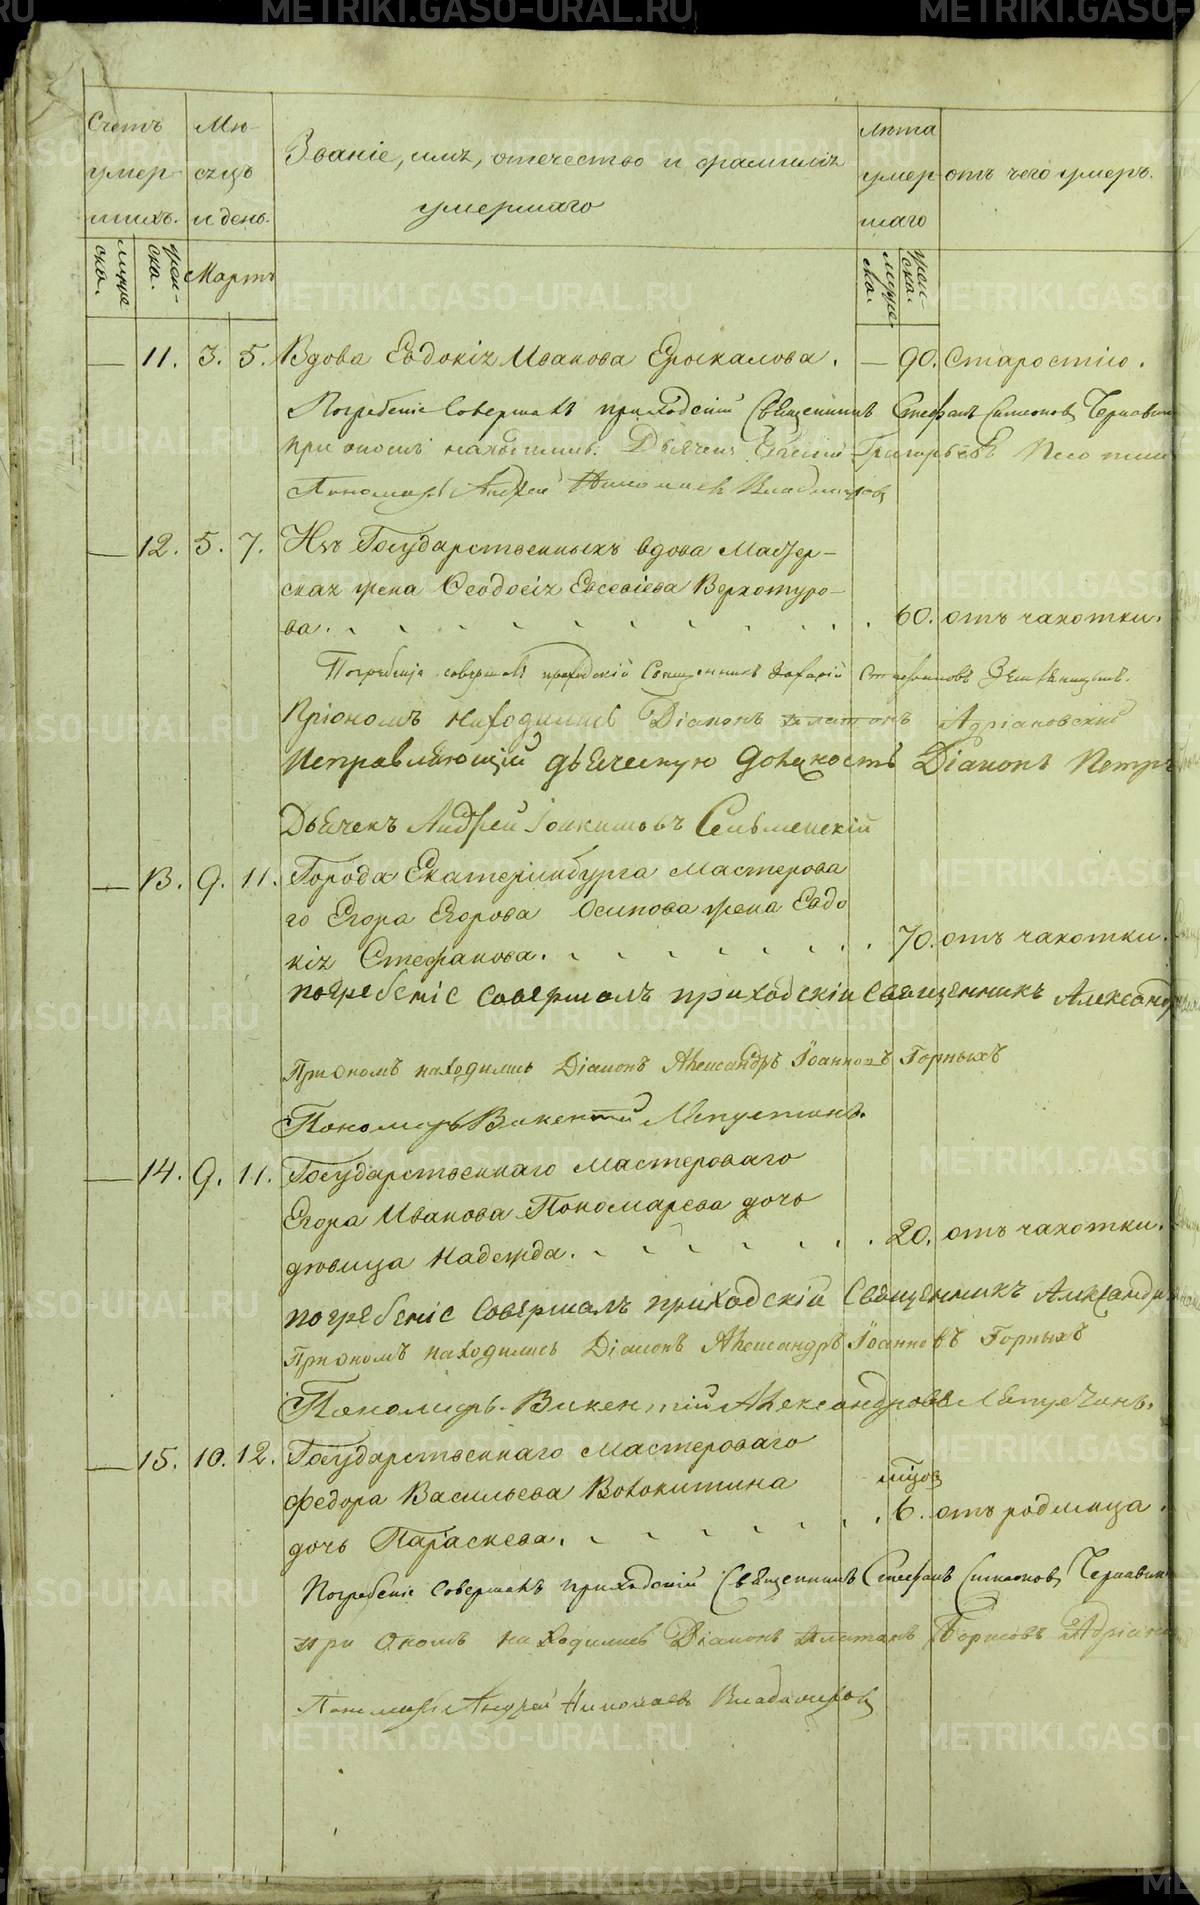 METRIKI.GASO-URAL.RU
Счетъ умер-шихъ.
Мѣ-сяцъ и день.
Званіе, имя, отечество и фамилія умершаго
лѣта умер-шаго
отъ чего умеръ.
мужеска.
женска.
Мартъ
мужеска.
женска.
— 11. 3. 5. Вдова Евдокія Иванова Ерыкалова. — 90. Старостію.
Погребеніе совершалъ приходскій Священникъ Стефанъ Симеоновъ
при ономъ находились: Дьячекъ Григорьевъ
Пономарь Андрей Николаевъ Владимировъ
— 12. 5. 7. Изъ Государственныхъ вдова Мастер-
ская жена Ѳеодосія Евсевіева Верхотуро-
ва. 60. отъ чахотки.
Погребеніе совершалъ приходскій Священникъ Захарій Стефановъ
При ономъ находились Діаконъ Платонъ Адріановскій
Исправляющій дьяческую должность Діаконъ Петръ
Дьячекъ Андрей Іоакимовъ Сельменскій
— 13. 9. 11. Города Екатеринбурга мастерова
го Егора Егорова Осипова жена Евдо
кія Стефанова. 70. отъ чахотки.
погребеніе совершалъ приходскій священникъ Александръ
При ономъ находились Діаконъ Александръ Іоанновъ Горныхъ
Пономарь Викентій
— 14. 9. 11. Государственнаго мастероваго
Егора Иванова Пономарева дочь
дѣвица Надежда. 20. отъ чахотки.
погребеніе совершалъ приходскій Священникъ Александръ
При ономъ находились Діаконъ Александръ Іоанновъ Горныхъ
Пономарь Викентій Александровъ
— 15. 10. 12. Государственнаго мастероваго
Федора Васильева Волокитина
мѣцов
дочь Параскева. 6. отъ родимца.
Погребеніе совершалъ приходскій Священникъ Стефанъ Симеоновъ
при ономъ находились Діаконъ Платонъ Борисовъ
Пономарь Андрей Николаевъ Владимировъ